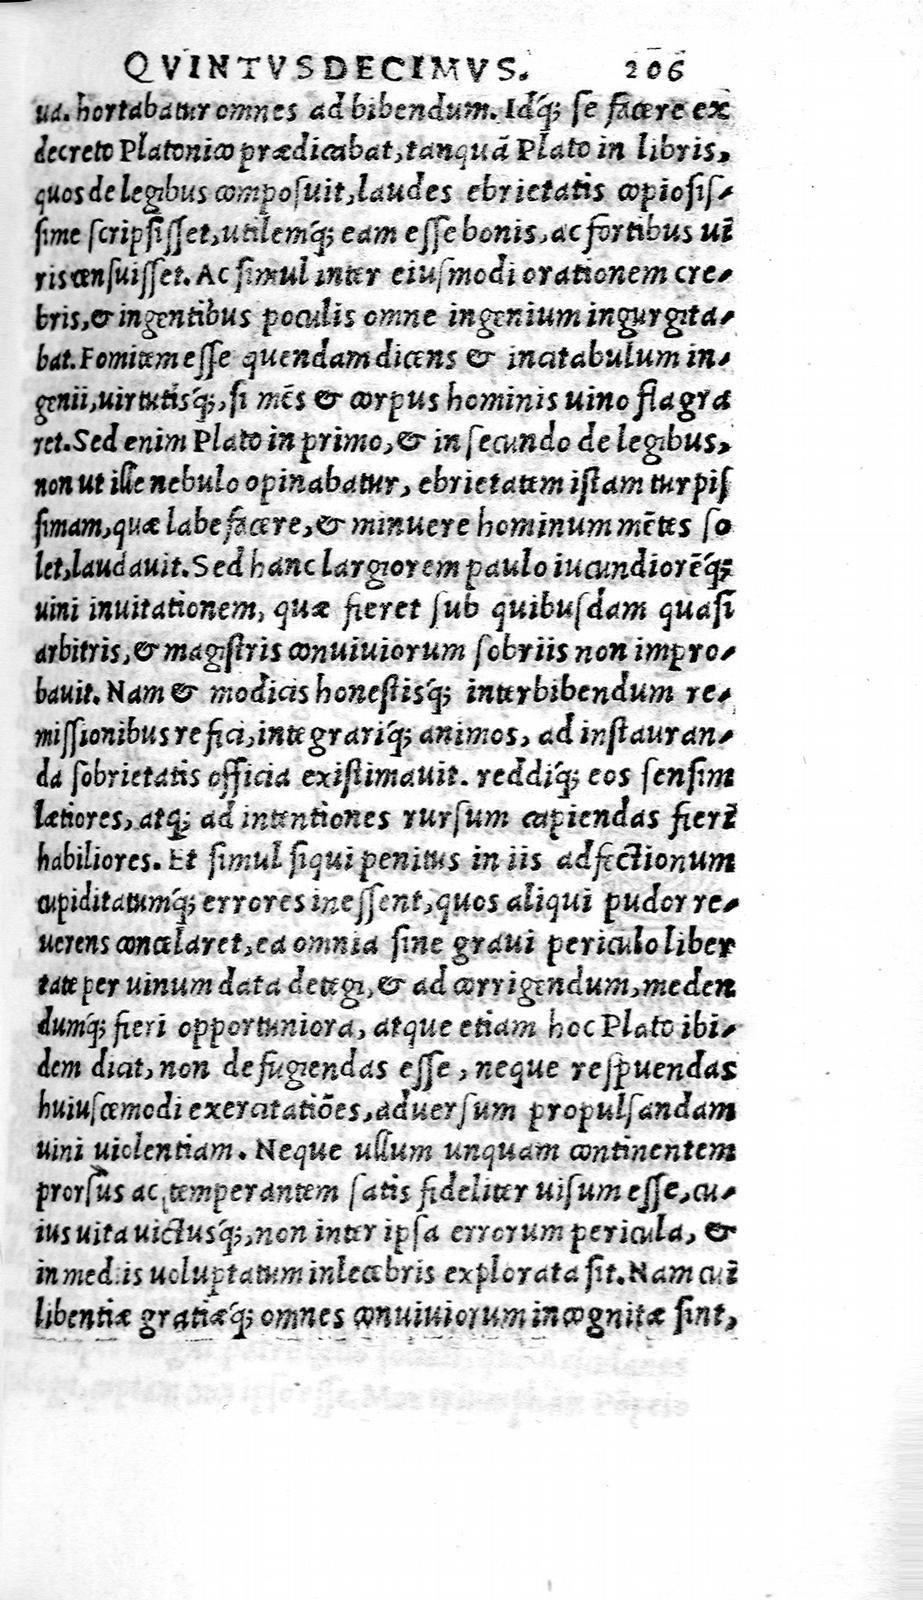 QVINTVSDECIMVS. 206
ua. hortabatur omnes ad bibendum. Idq́; se facere ex
decreto Platonico prædicabat, tanquā Plato in libris,
quos de legibus composuit, laudes ebrietatis copiosis-
sime scripsisset, utilemq́; eam esse bonis, ac fortibus ui
ris censuisset. Ac simul inter eiusmodi orationem cre-
bris, & ingentibus poculis omne ingenium ingurgita-
bat. Fomitem esse quendam dicens & incitabulum in-
genii, uirtutisq́;, si mēs & corpus hominis uino flagra
ret. Sed enim Plato in primo, & in secundo de legibus,
non ut ille nebulo opinabatur, ebrietatem istam turpis
simam, quæ labefacere, & minuere hominum mētes so
let, laudauit. Sed hanc largiorem paulo iucundiorēq́;
uini inuitationem, quæ fieret sub quibusdam quasi
arbitris, & magistris conuiuiorum sobriis non impro-
bauit. Nam & modicis honestisq́; inter bibendum re-
missionibus refici, integrariq́; animos, ad instauran-
da sobrietatis officia existimauit. reddiq́; eos sensim
lætiores, atq; ad intentiones rursum capiendas fieri
habiliores. Et simul siqui penitus in iis adfectionum
cupiditatumq́; errores inessent, quos aliqui pudor re-
uerens concelaret, ea omnia sine graui periculo liber
tate per uinum data detegi, & ad corrigendum, meden
dumq́; fieri opportuniora, atque etiam hoc Plato ibi-
dem dicit, non defugiendas esse, neque respuendas
huiuscemodi exercitatiōes, aduersum propulsandam
uini uiolentiam. Neque ullum unquam continentem
prorsus ac temperantem satis fideliter uisum esse, cu-
ius uita uictusq́;, non inter ipsa errorum pericula, &
in mediis uoluptatum inlecebris explorata sit. Nam cui
libentiæ gratiæq́; omnes conuiuiorum incognitæ sint,